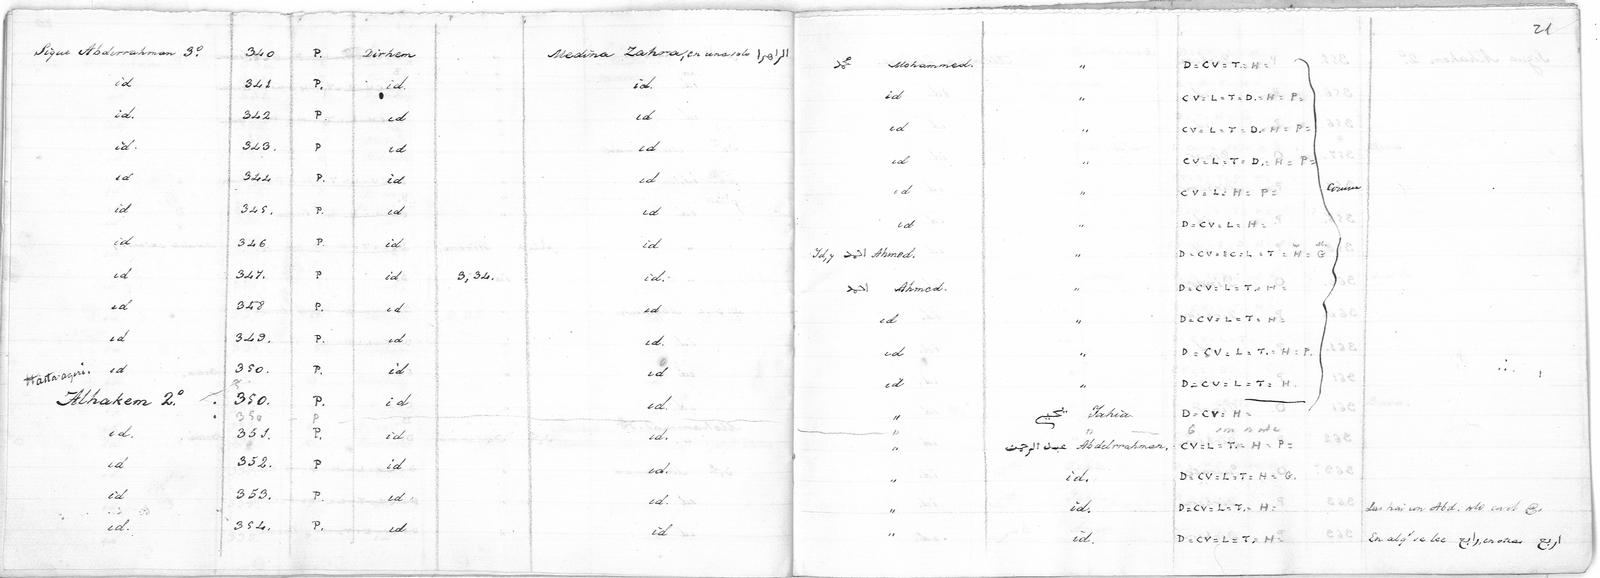 21
Sigue Abderrahman 3º. 340 P. Dirhem Medina Zahra, en una solo الزهرا محمد Mohammed. " D=CV=T=H=
id 341 P. id. id. id " CV=L=T=D.=H=P=
id. 342 P. id id id " CV=L=T=D.=H=P=
id. 343. P id id id " CV=L=T=D.=H=P=
id 344 P. id id id " CV=L=H=P= Comun
id 345. P. id id id " D=CV=L=H=
id 346 P. id id Id, y احمد Ahmed. " D=CV=L=T=H=G
id 347. P id 3,34. id. احمد Ahmed. " D=CV=L=T.=H=
id 348 P. id id id " D=CV=L=T=H=
id 349. P. id id. id " D=CV=L=T.=H=P.
Hasta aqui. id 350. P. id id id " D=CV=L=T=H.
Alhakem 2º. 350. P. id id. " يحيى Iahia D=CV=H=
350 P " " 6
id. 351. P. id id. " عبد الرحمن Abdelrrahman, CV=L=T.=H=P=
id 352. P id id. " id. D=CV=L=T=H=G.
id 353. P. id. id. " id. D=CV=L=T.=H=
id. 354. P. id id " id. D=CV=L=T.=H= En alg.ª se lee رابح, en otras اربح